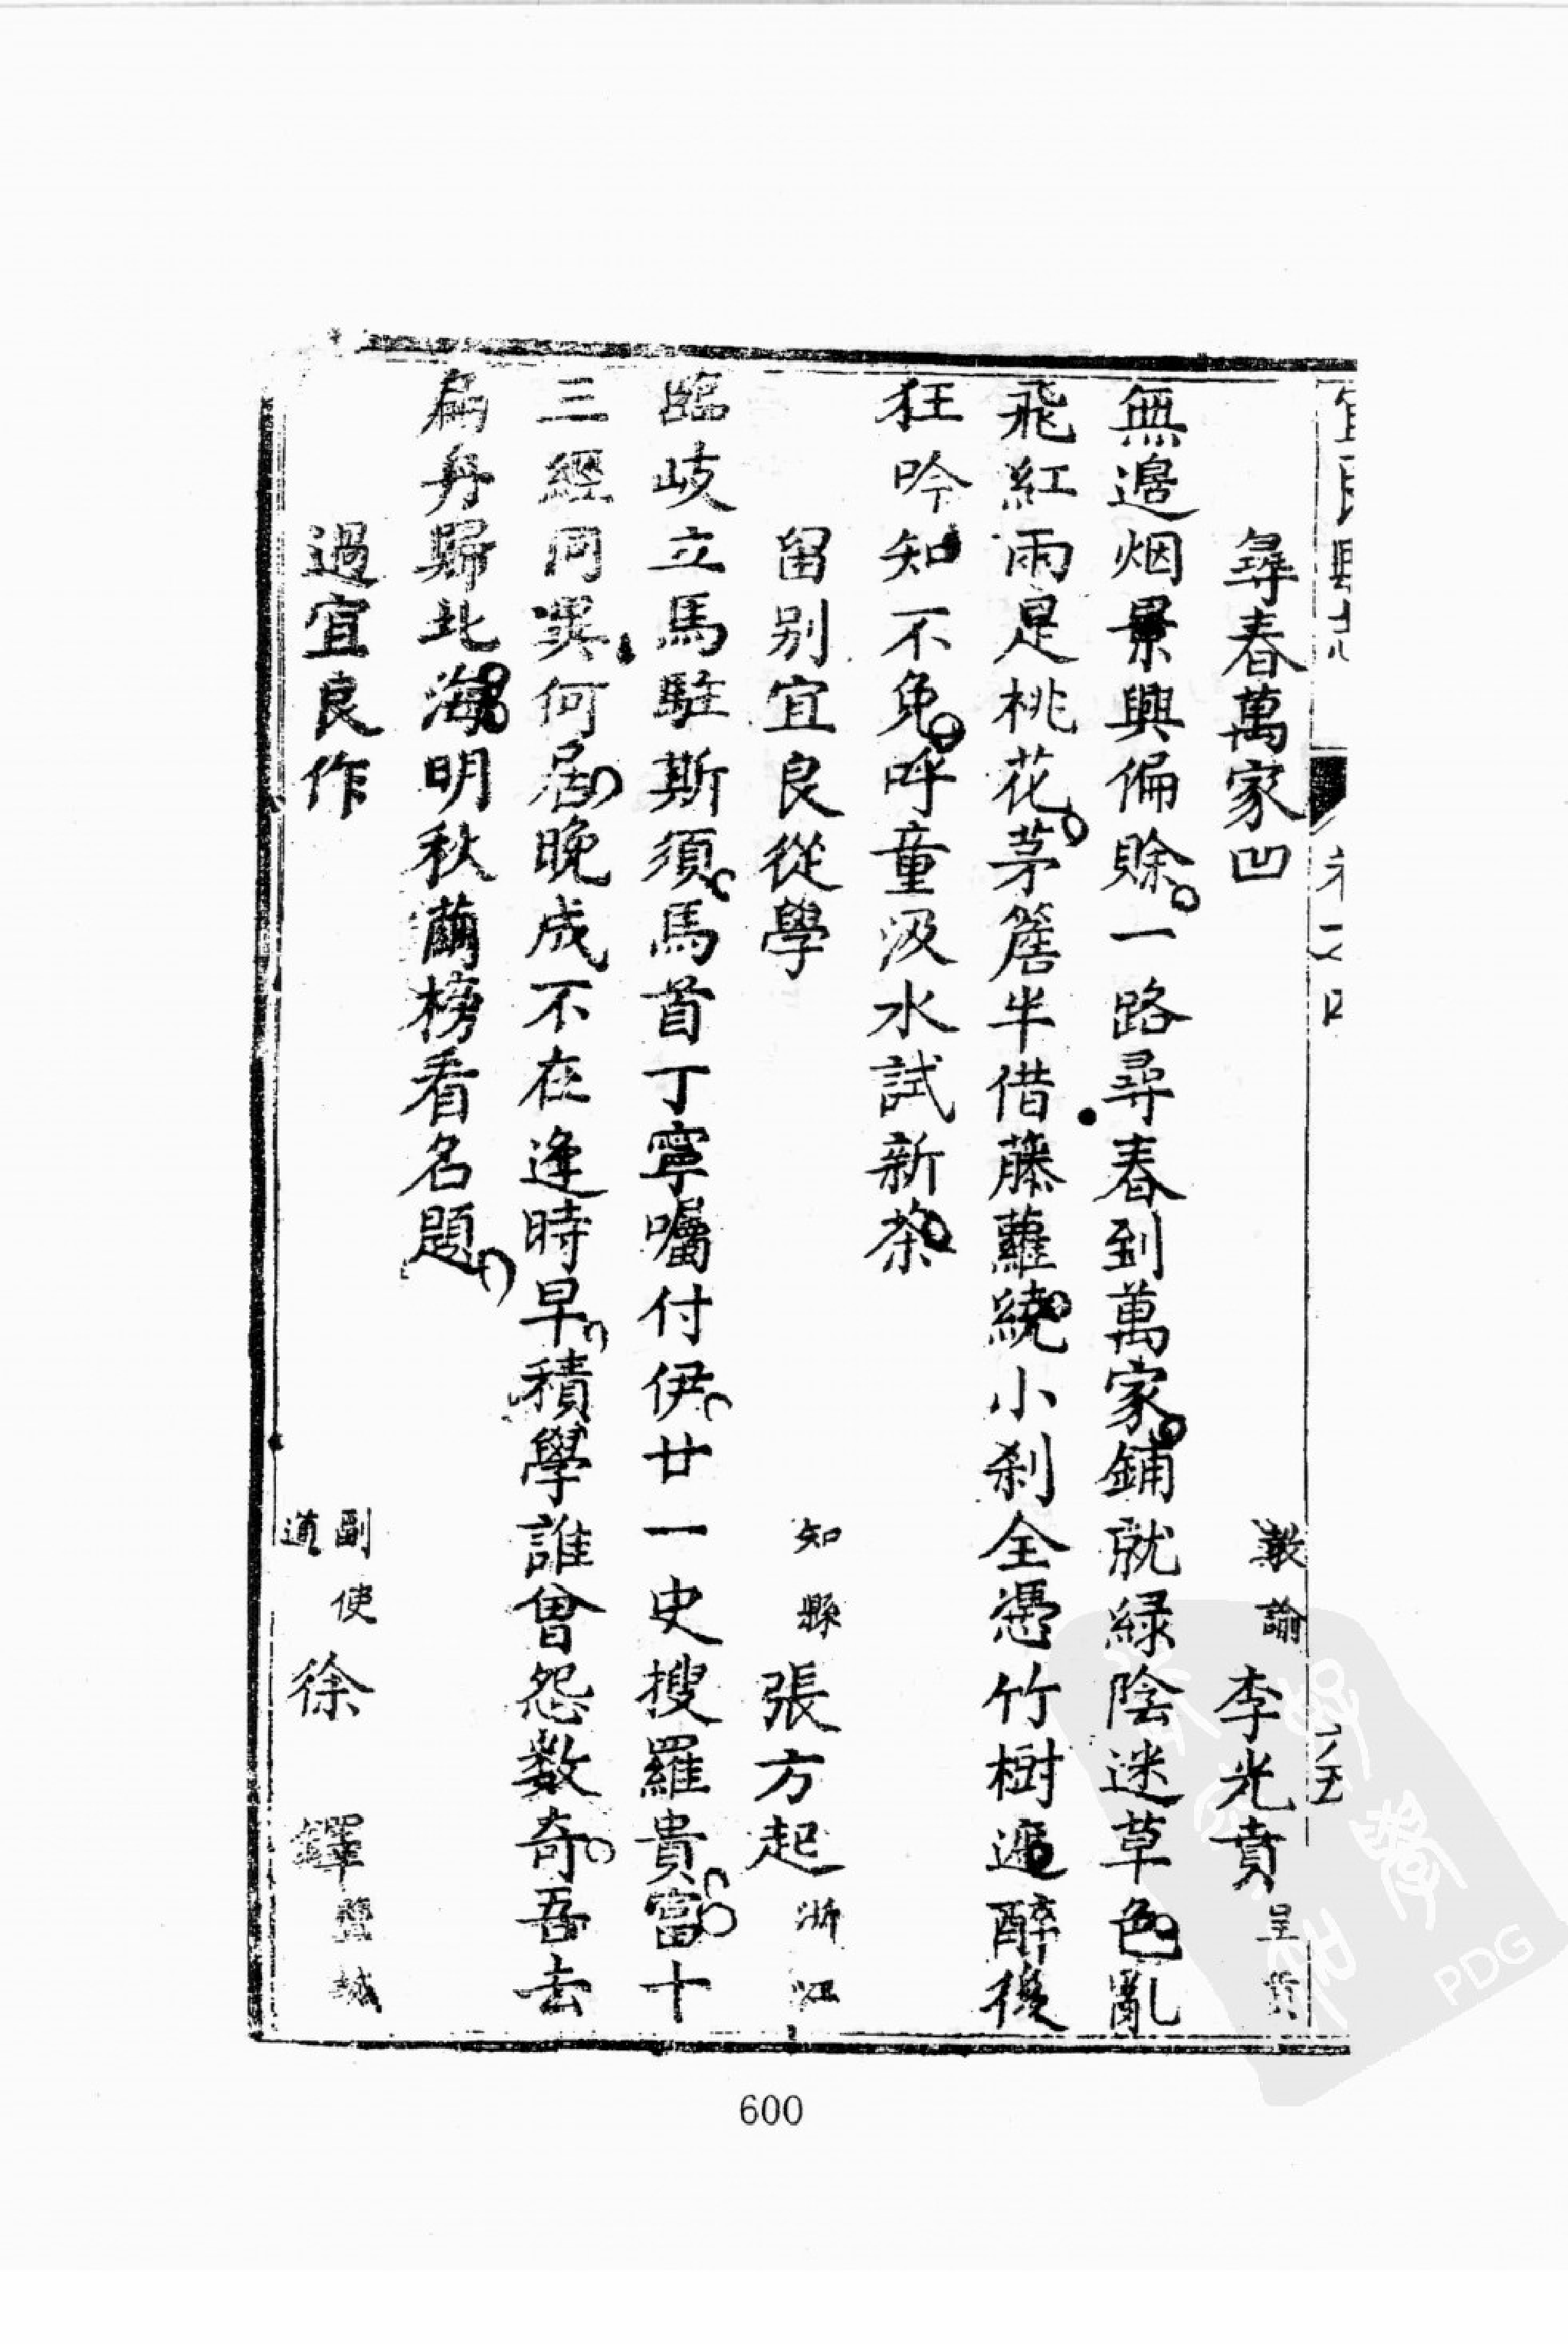 尋春萬家凹 教諭 李光賁 呈貢
無邊烟景興偏賒一路尋春到萬家鋪就緑陰迷草色亂
飛紅雨是桃花茅簷半借藤蘿繞小刹全憑竹樹遮醉後
狂吟知不免呼童汲水試新茶
留别宜良從學 知縣 張方起 浙江
臨岐立馬駐斯須馬首丁寧囑付伊廿一史搜羅貴富十
三經同異何居晚成不在逢時早積學誰曾怨數奇吾去
扁舟歸北海明秋蘭榜看名題
過宜良作 副使道 徐鐸 鹽城
600
PDG